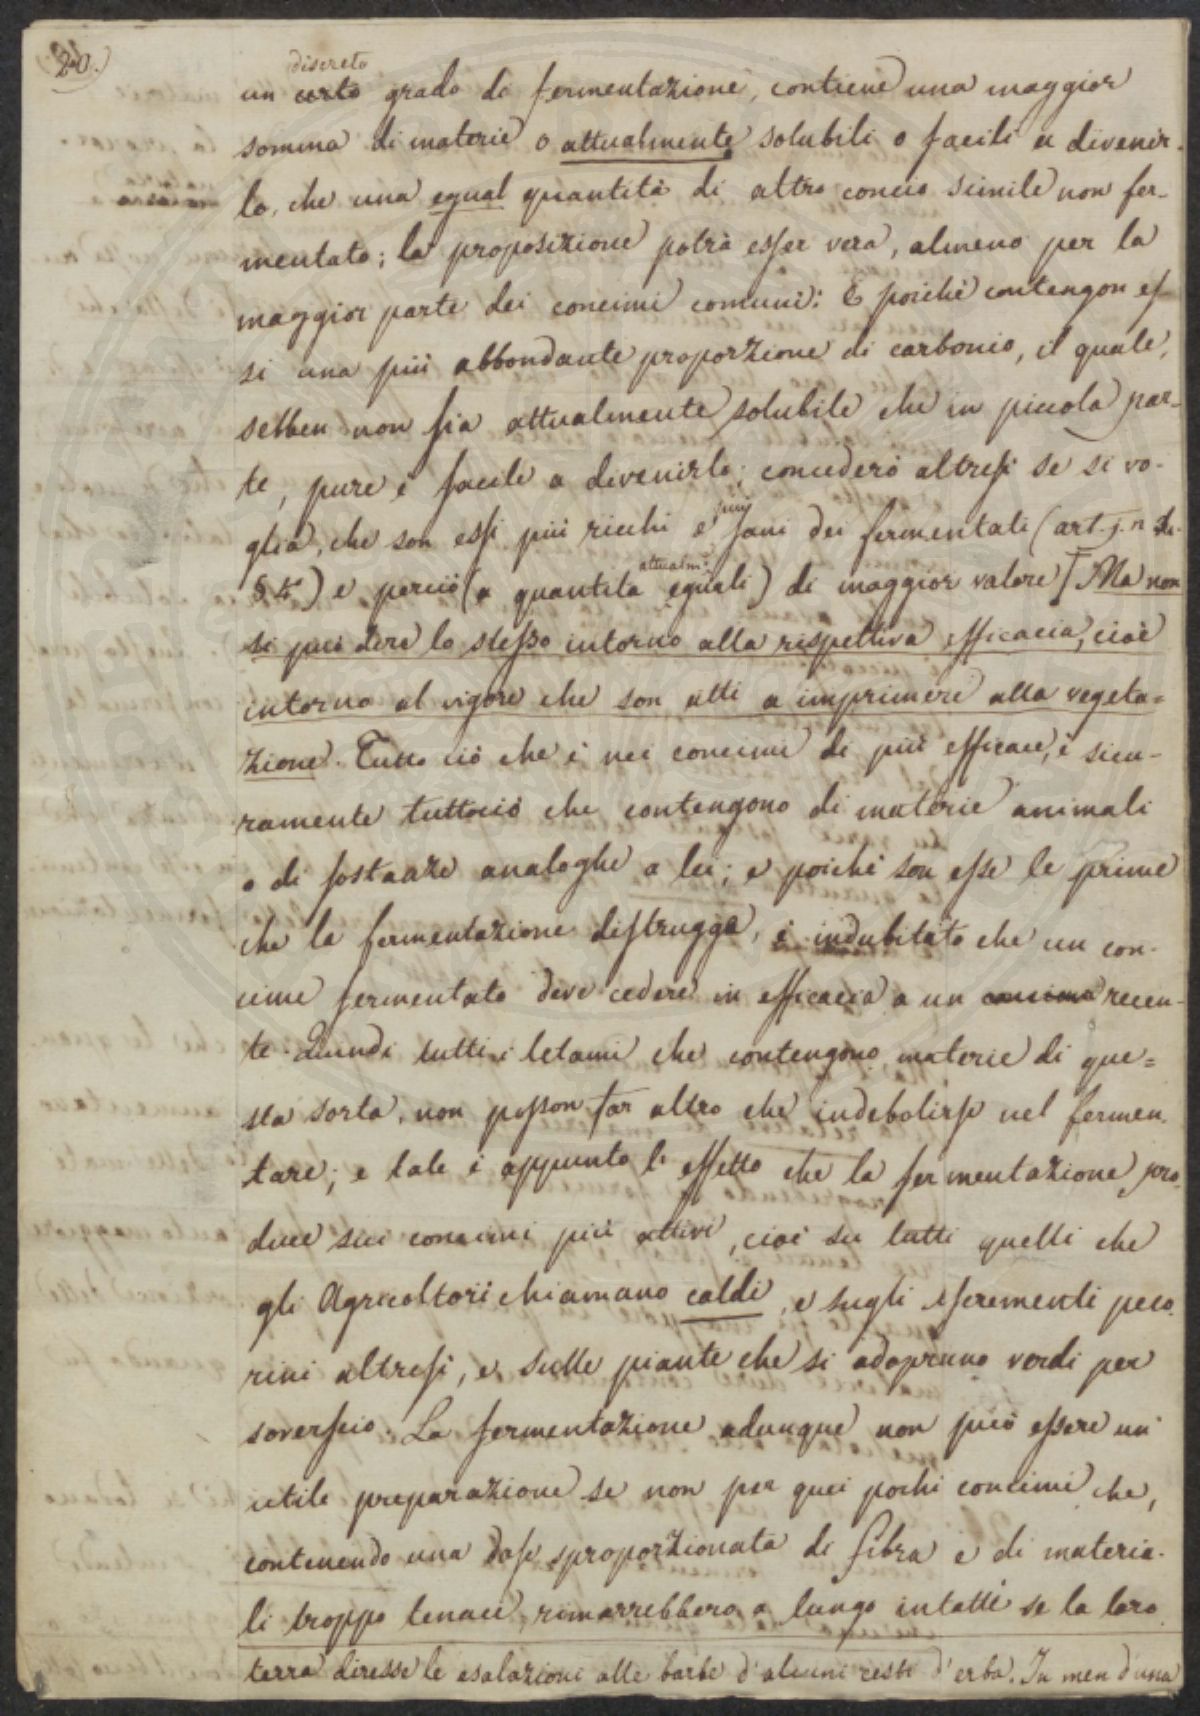 20.)
discreto
un certo grado di fermentazione, contiene una maggior
somma di materie o attualmente solubili o facili a divenir-
lo, che una egual quantità di altro concio simile non fer-
mentato; la proposizione potrà esser vera, almeno per la
maggior parte dei concimi comuni: E poichè contengon es
si una più abbondante proporzione di carbonio, il quale,
sebben non sia attualmente solubile che in piccola par-
te, pure è facile a divenirlo; concederò altresi se si vo-
glia, che son essi più ricchi e più sani dei fermentati (art.
§ 4°) e perciò (a quantita attualm.e eguali) di maggior valore. Ma non
si può dire lo stesso intorno alla rispettiva efficacia, cioè
intorno al vigore che son atti a imprimere alla vegeta=
zione. Tutto ciò che è nei concimi di più efficace, è sicu-
ramente tuttociò che contengono di materie animali
o di sostanze analoghe a lei; e poichè son esse le prime
che la fermentazione distrugga, è indubitato che un con-
cime fermentato deve cedere in efficacia a un concime recen-
te. Quindi tutti i letami che contengono materie di que=
sta sorta, non posson far altro che indebolirsi nel fermen-
tare; e tale è appunto l'effetto che la fermentazione pro-
duce sui concimi più attivi, cioè su tutti quelli che
gli Agricoltori chiamano caldi, e sugli escrementi peco-
rini altresi, e sulle piante che si adoprano verdi per
soverscio. La fermentazione adunque non può essere un'
utile preparazione se non per quei pochi concimi che,
contenendo una dose sproporzionata di fibra e di materia-
li troppo tenaci, rimarrebbero a lungo intatti se la loro
terra diresse le esalazioni alle barbe d'alcuni cesti d'erba. In men d'una